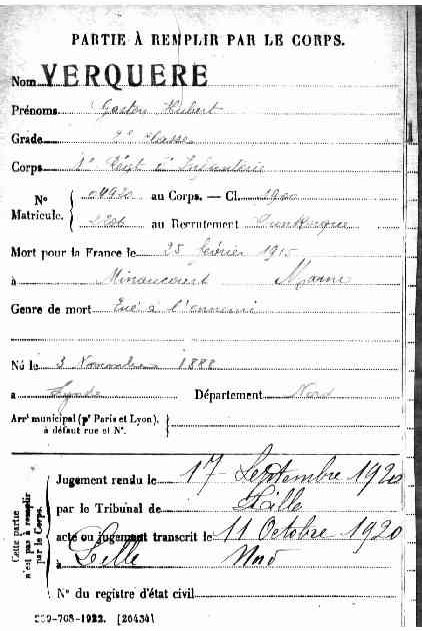 PARTIE À REMPLIR PAR LE CORPS.
Nom VERQUERE
Prénoms Gaston Hubert
Grade 2e Classe
Corps 1er Régt d'Infanterie
N° Matricule. { 04920 au Corps. — Cl. 1900
au Recrutement Dunkerque
Mort pour la France le 25 février 1915
à Minaucourt Marne
Genre de mort Tué à l'ennemi
Né le 3 Novembre 1888
à Lynde Département Nord
Arrt municipal (pr Paris et Lyon), à défaut rue et N°. {
Cette partie n'est pas à remplir par le Corps.
Jugement rendu le 17 Septembre 1920
par le Tribunal de Lille
acte ou jugement transcrit le 11 Octobre 1920
à Lille Nord
N° du registre d'état civil
-708-1922. [26434]